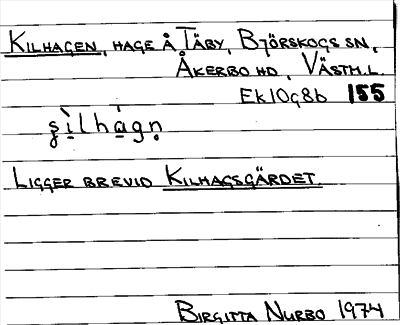 KILHAGEN, HAGE Å TÄBY, BJÖRSKOGS SN,
ÅKERBO HD, VÄSTM.L.
EK10G8b 155
ʂìlhágṇ
LIGGER BREVID KILHAGSGÄRDET.
BIRGITTA NURBO 1974